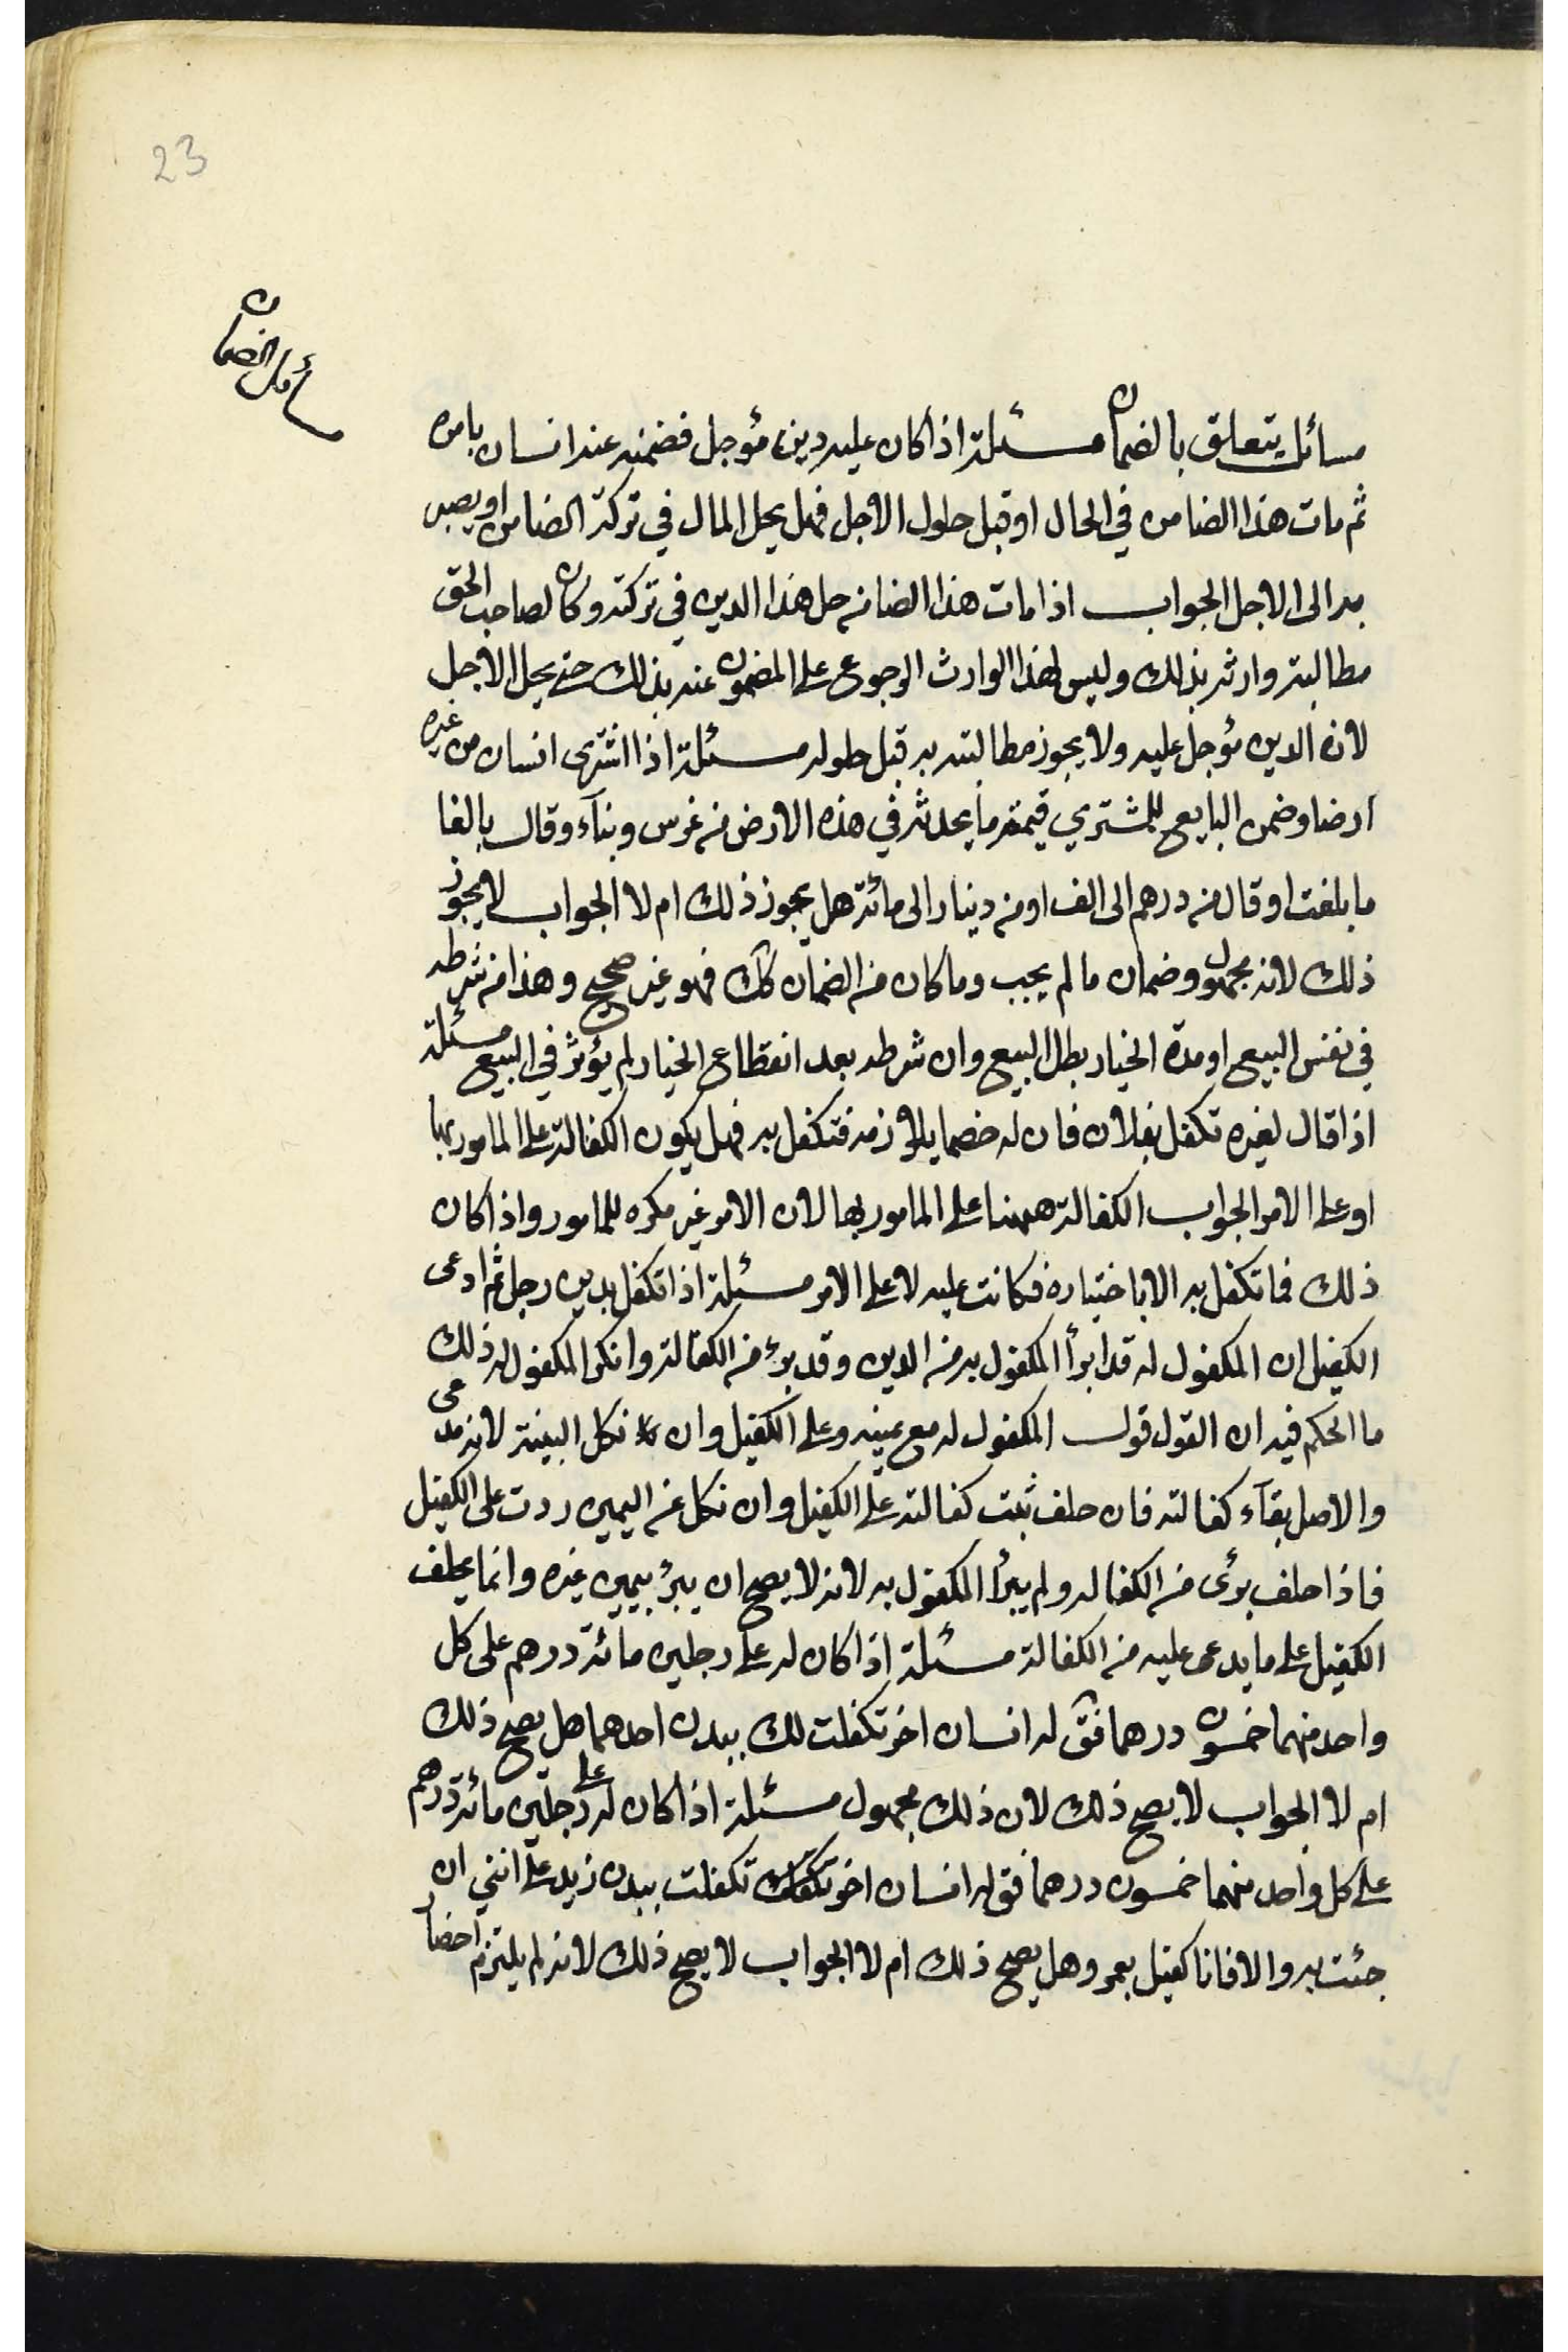 23
مسائل الضمان
مسائل يتعلق بالضمان مسئلة اذا كان عليه دين مؤجل فضمنه عنه انسان بامره
ثم مات هذا الضامن في الحال او قبل حلول الاجل فهل يحل المال في تركة الضامن او يصبر
به الى الاجل الجواب اذا مات هذا الضامن حل هذا الدين في تركته وكان لصاحب الحق
مطالبة وارثه بذلك وليس لهذا الوارث الرجوع على المضمون عنه بذلك حتى يحل الاجل
لان الدين مؤجل عليه ولا يجوز مطالبته به قبل حلوله مسئلة اذا اشترى انسان من غيره
ارضا وضمن البايع للمشتري قيمة ما يحدثه في هذه الارض من غرس وبناء وقال بالغا
ما بلغت او قال من درهم الى الف او من دينار الى مائة هل يجوز ذلك ام لا الجواب لا يجوز
ذلك لانه مجهول وضمان ما لم يجب وما كان من الضمان كك فهو غير صحيح وهذا من شرطه
في نفس البيع او مدة الخيار بطل البيع وان شرطه بعد انقطاع الخيار لم يؤثر في البيع مسئلة
اذا قال لغيره تكفل بفلان فان له خصما يلازمه فتكفل به فهل يكون الكفالة على المامور بها
او على الامر الجواب الكفالة ههنا على المامور بها لان الامر غير مكره للمامور واذا كان
ذلك فما تكفل به الا باختياره فكانت عليه لا على الامر مسئلة اذا تكفل بدين رجل ثم ادعى
الكفيل ان المكفول له قد ابرأ المكفول به من الدين وقد برء من الكفالة وانكر المكفول له ذلك
ما الحكم فيه ان القول قول المكفول له مع يمينه وعلى الكفيل وان نكل البينة لانه مدعى
والاصل بقآء كفالته فان حلف ثبت كفالته على الكفيل وان نكل عن اليمين ردت على الكفيل
فاذا حلف برئ من الكفاله ولم يبرأ المكفول به لانه لا يصح ان يبرء بيمين غيره وانما يحلف
الكفيل على ما يدعى عليه من الكفالة مسئلة اذا كان له على رجلين مائة درهم على كل
واحد منهما خمسون درهما فق له انسان اخر تكفلت لك ببدن احدهما هل يصح ذلك
ام لا الجواب لا يصح ذلك لان ذلك مجهول مسئلة اذا كان له على رجلين مائة درهم
على كل واحد منهما خمسون درهما فق له انسان اخر تكفلت ببدن زيد على انني ان
جئت به والا فانا كفيل بعمرو هل يصح ذلك ام لا الجواب لا يصح ذلك لانه لم يلتزم احضار